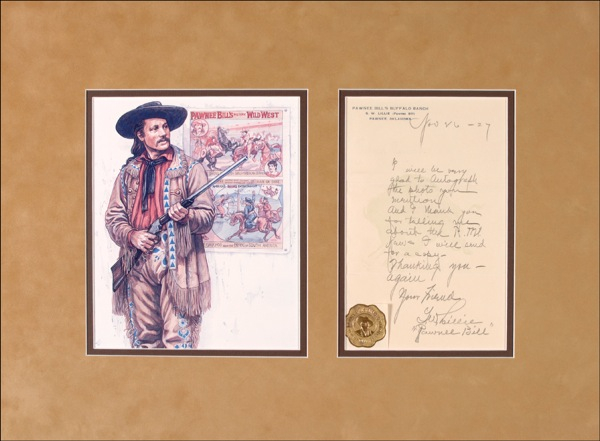 PAWNEE BILL'S
WILD WEST
PAWNEE BILL'S BUFFALO RANCH
G. W. LILLIE (Pawnee Bill)
PAWNEE, OKLAHOMA
Nov 26 - 27
I will be very
glad to Autograph
the photo you
mention
And I thank you
for telling me
about the
I will send
for a copy -
Thanking you -
again
Your Friend
GW Lillie
"Pawnee Bill"